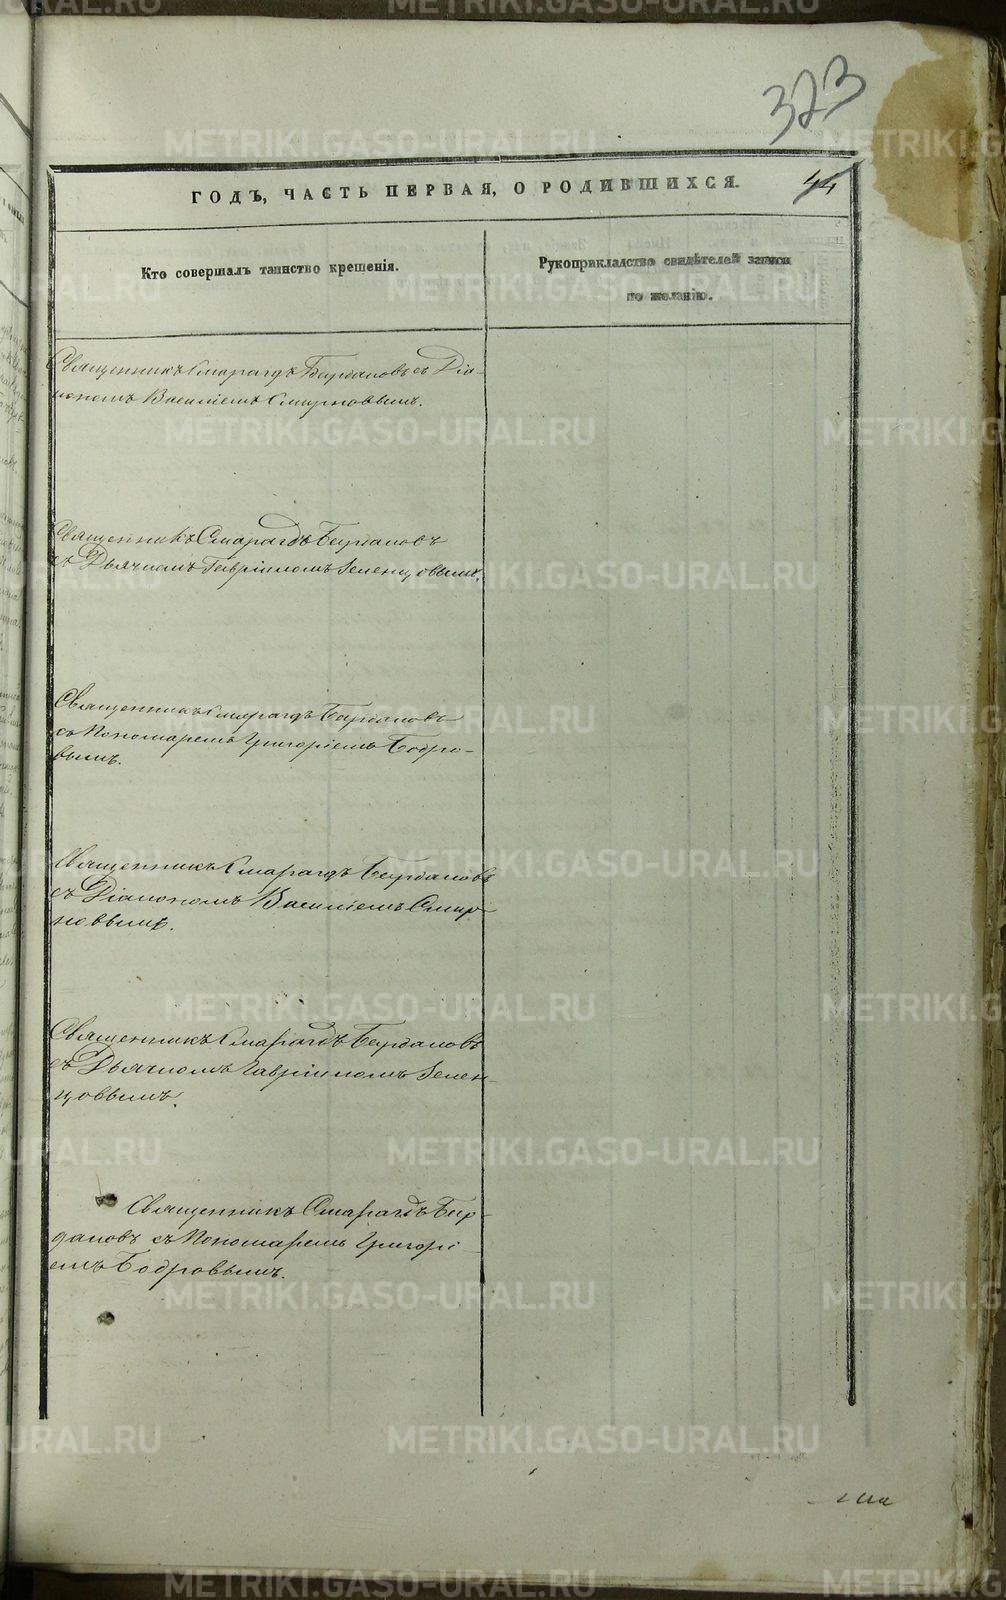 323
ГОДЪ, ЧАСТЬ ПЕРВАЯ, О РОДИВШИХСЯ.
44
Кто совершалъ таинство крещенія.
Рукоприкладство свидѣтелей записи
по желанію.
Священникъ Смарагдъ Бирдановъ съ Діа-
кономъ Василіемъ Смирновымъ.
Священникъ Смарагдъ Бирдановъ
съ Дьячкомъ Гавріиломъ Зеленцовымъ.
Священникъ Смарагдъ Бирдановъ
съ Пономаремъ Григоріемъ Бодро-
вымъ.
Священникъ Смарагдъ Бирдановъ
съ Діакономъ Василіемъ Смир-
новымъ.
Священникъ Смарагдъ Бирдановъ
съ Дьячкомъ Гавріиломъ Зелен-
цовымъ.
Священникъ Смарагдъ Бир-
дановъ съ Пономаремъ Григорі-
емъ Бодровымъ.
METRIKI.GASO-URAL.RU